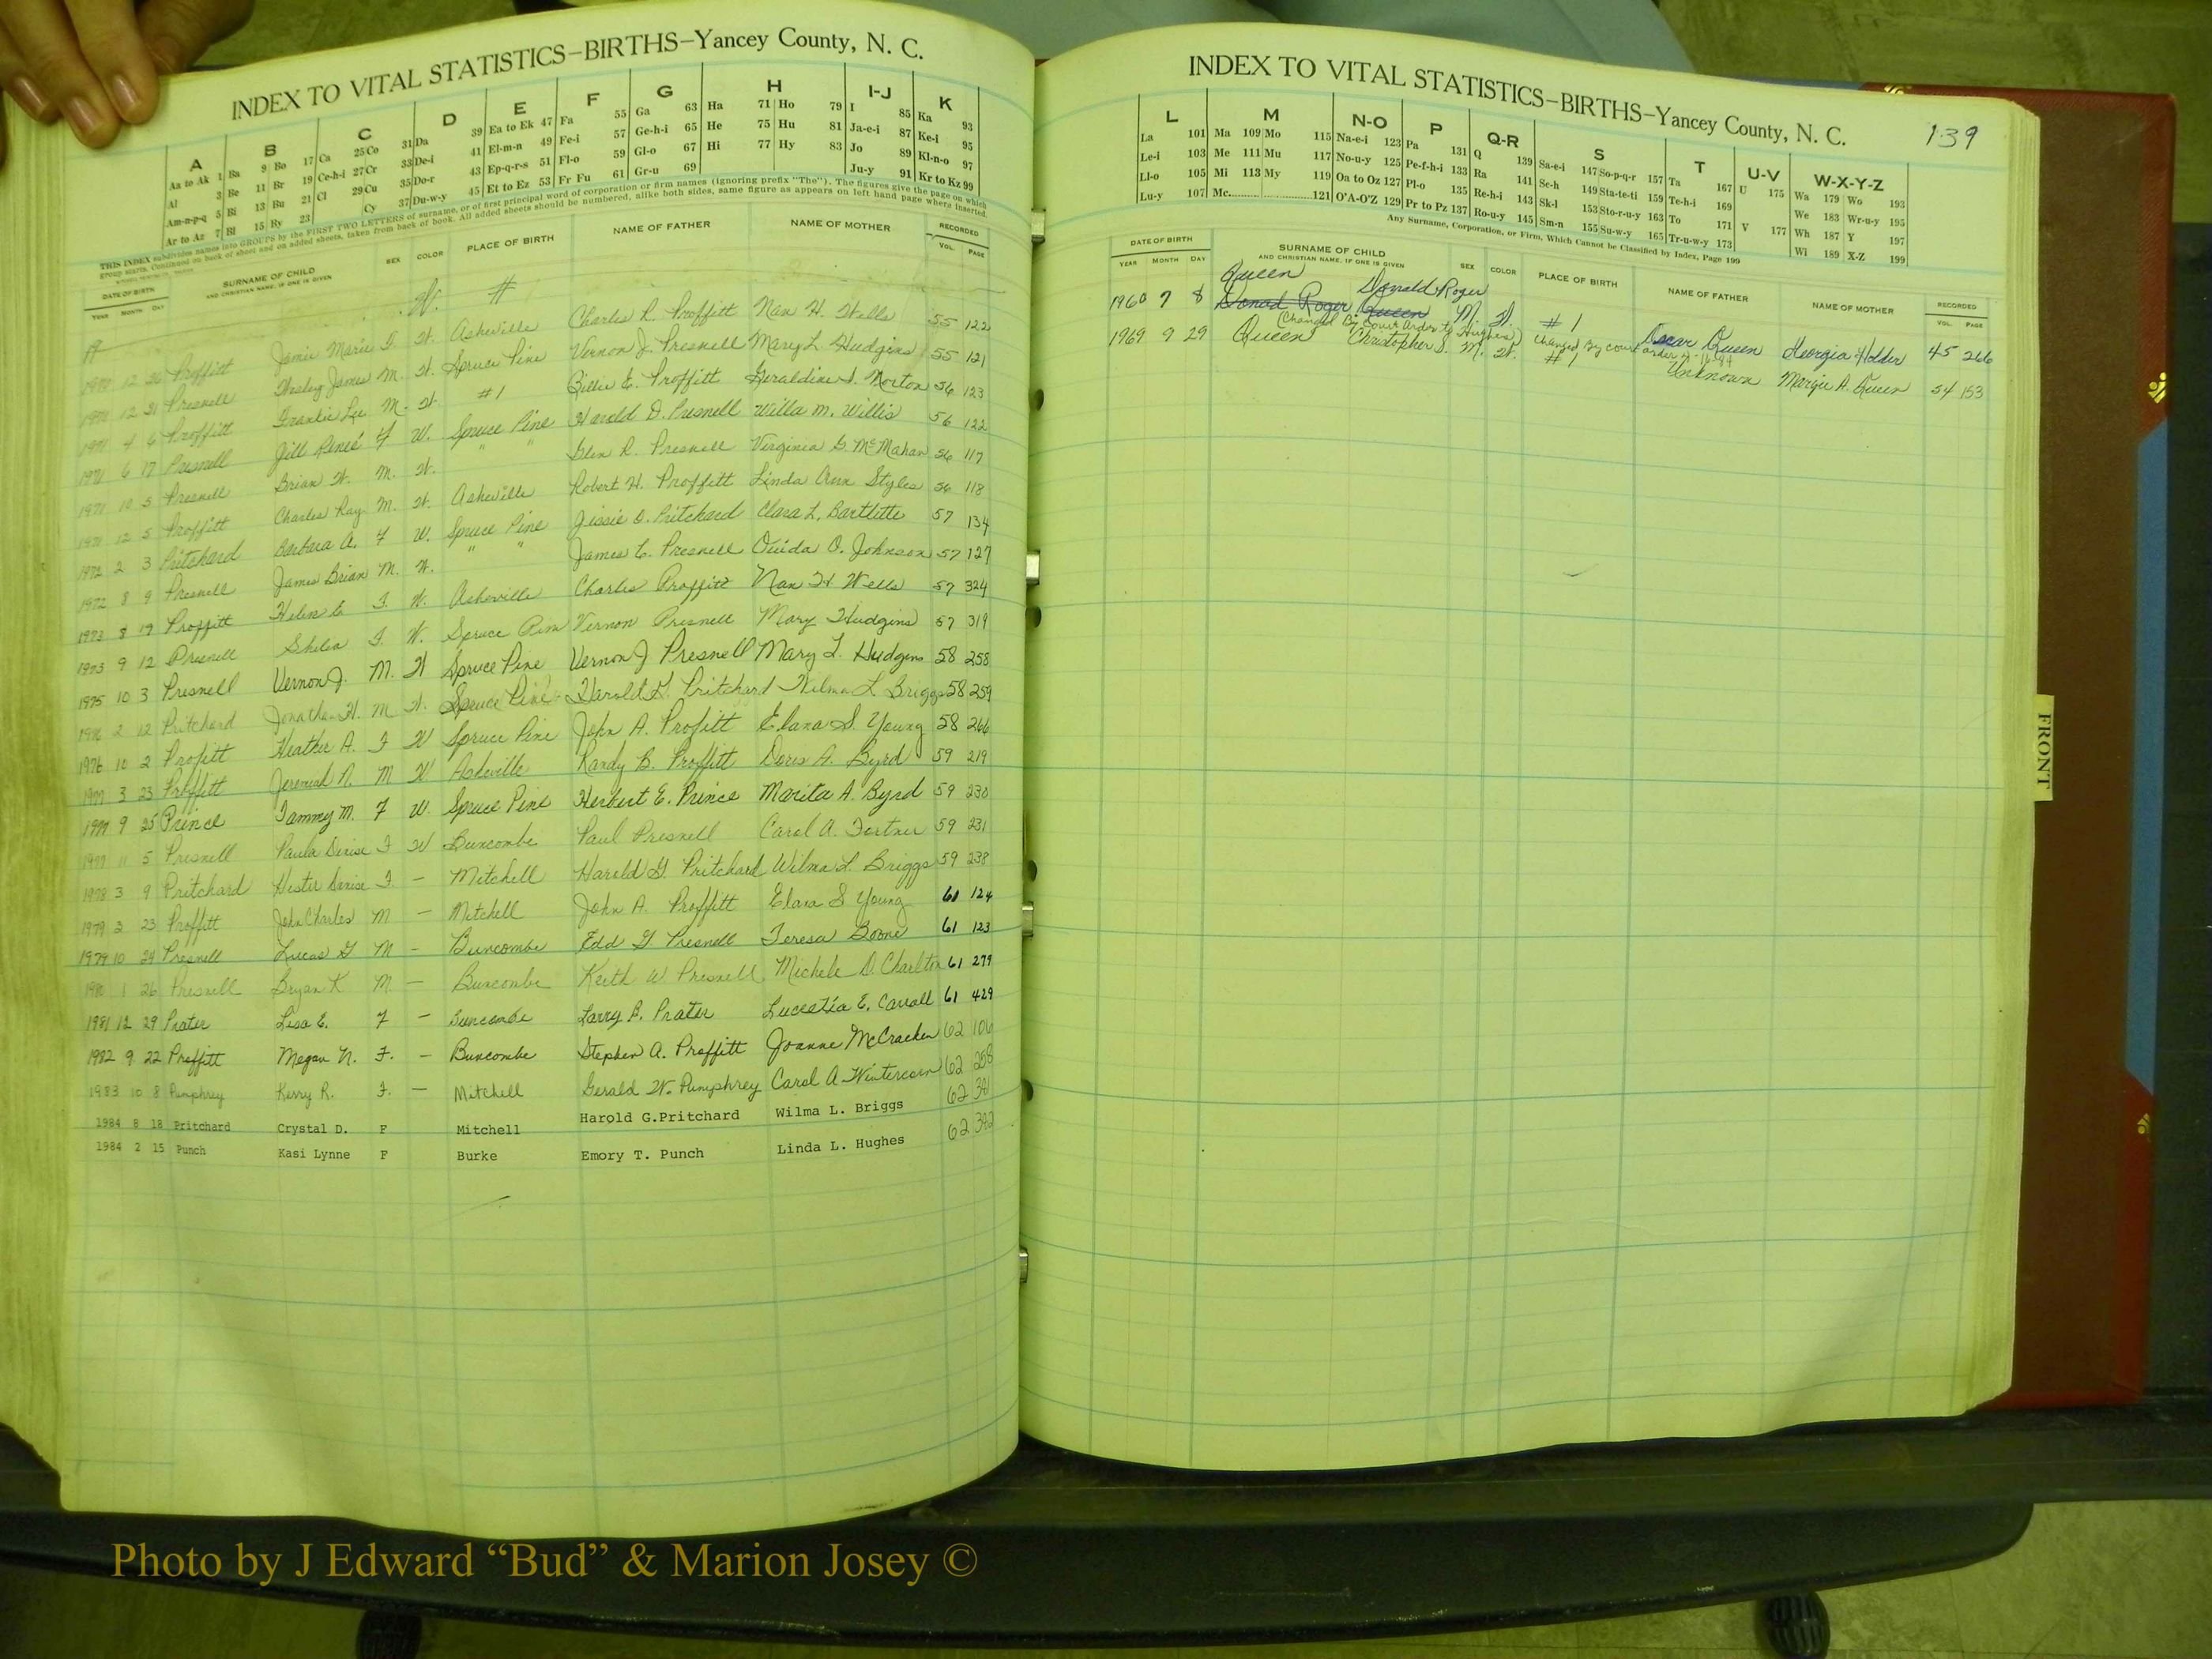 INDEX TO VITAL STATISTICS–BIRTHS–Yancey County, N. C.
A B C D E F G H I-J K
Aa to Ak 1 Ba 9 Bo 17 Ca 25 Co 31 Da 39 Ea to Ek 47 Fa 55 Ga 63 Ha 71 Ho 79 I 85 Ka 93
Al 3 Be 11 Br 19 Ce-h-i 27 Cr 33 De-i 41 El-m-n 49 Fe-i 57 Ge-h-i 65 He 75 Hu 81 Ja-e-i 87 Ke-i 95
Am-n-p-q 5 Bi 13 Bu 21 Cl 29 Cu 35 Do-r 43 Ep-q-r-s 51 Fl-o 59 Gl-o 67 Hi 77 Hy 83 Jo 89 Kl-n-o 97
Ar to Az 7 Bl 15 By 23 Cy 37 Du-w-y 45 Et to Ez 53 Fr Fu 61 Gr-u 69 Ju-y 91 Kr to Kz 99
THIS INDEX subdivides names into GROUPS by the FIRST TWO LETTERS of surname, or of first principal word of corporation or firm names (ignoring prefix "The"). The figures give the page on which
group starts. Continued on back of sheet and on added sheets, taken from back of book. All added sheets should be numbered, alike both sides, same figure as appears on left hand page where inserted.
DATE OF BIRTH SURNAME OF CHILD SEX COLOR PLACE OF BIRTH NAME OF FATHER NAME OF MOTHER RECORDED
YEAR MONTH DAY AND CHRISTIAN NAME, IF ONE IS GIVEN VOL. PAGE
W. #
1970 12 26 Proffitt Jamie Marie F. W. Asheville Charles R. Proffitt Nan H. Wells 55 122
12 31 Presnell Wesley James M. W. Spruce Pine Vernon J. Presnell Mary L. Hudgins 55 121
1971 4 6 Proffitt Frankie Lee M. W. #1 Billie E. Proffitt Geraldine S. Morton 56 123
1971 6 17 Presnell Jill Reneé F W. Spruce Pine Harold D. Presnell Willa M. Willis 56 122
1971 10 5 Presnell Brian W. M. W. " " Glen R. Presnell Virginia G. McMahan 56 117
1971 12 5 Proffitt Charles Ray M. W. Asheville Robert H. Proffitt Linda Ann Styles 56 118
1972 2 3 Pritchard Barbara A. F W. Spruce Pine Jessie D. Pritchard Clara L. Bartlitte 57 134
1972 8 9 Presnell James Brian M. W. " " James C. Presnell Ouida O. Johnson 57 127
1973 8 19 Proffitt Helen E F. W. Asheville Charles Proffitt Nan H Wells 57 324
1973 9 12 Presnell Shelia F. W. Spruce Pine Vernon Presnell Mary Hudgins 57 319
1975 10 3 Presnell Vernon J. M. W Spruce Pine Vernon J Presnell Mary L. Hudgins 58 258
1976 2 12 Pritchard Jonathan H. M W. Spruce Pine Harold G. Pritchard Wilma L Briggs 58 259
1976 10 2 Proffitt Heather A. F W Spruce Pine John A. Proffitt Elana S. Young 58 266
1977 3 23 Proffitt Jeremiah N. M W Asheville Randy B. Proffitt Doris A. Byrd 59 219
1977 9 25 Prince Tammy M. F W. Spruce Pine Herbert E. Prince Marita A. Byrd 59 230
1977 11 5 Presnell Paula Denise F W Buncombe Paul Presnell Carol A. Fortner 59 231
1978 3 9 Pritchard Hester Denise F. – Mitchell Harold G. Pritchard Wilma L. Briggs 59 238
1979 3 23 Proffitt John Charles M – Mitchell John A. Proffitt Elana S Young 60 124
1979 10 24 Presnell Lucas G M – Buncombe Edd G Presnell Teresa Boone 61 123
1980 1 26 Presnell Bryan K M – Buncombe Keith W Presnell Michele D Charlton 61 279
1981 12 29 Prater Lisa E. F – Buncombe Larry B. Prater Lucretia E. Carroll 61 429
1982 9 22 Proffitt Megan N. F. – Buncombe Stephen A. Proffitt Joanne McCracken 62 106
1983 10 8 Pumphrey Kerry R. F. – Mitchell Gerald W. Pumphrey Carol A Wintercorn 62 258
1984 8 18 Pritchard Crystal D. F Mitchell Harold G.Pritchard Wilma L. Briggs 62 391
1984 2 15 Punch Kasi Lynne F Burke Emory T. Punch Linda L. Hughes 62 392
INDEX TO VITAL STATISTICS–BIRTHS–Yancey County, N. C. 139
L M N-O P Q-R S T U-V W-X-Y-Z
La 101 Ma 109 Mo 115 Na-e-i 123 Pa 131 Q 139 Sa-e-i 147 So-p-q-r 157 Ta 167 U 175 Wa 179 Wo 193
Le-i 103 Me 111 Mu 117 No-u-y 125 Pe-f-h-i 133 Ra 141 Sc-h 149 Sta-te-ti 159 Te-h-i 169 We 183 Wr-u-y 195
Ll-o 105 Mi 113 My 119 Oa to Oz 127 Pl-o 135 Re-h-i 143 Sk-l 153 Sto-r-u-y 163 To 171 V 177 Wh 187 Y 197
Lu-y 107 Mc 121 O'A-O'Z 129 Pr to Pz 137 Ro-u-y 145 Sm-n 155 Su-w-y 165 Tr-u-w-y 173 Wi 189 X-Z 199
Any Surname, Corporation, or Firm, Which Cannot be Classified by Index, Page 199
DATE OF BIRTH SURNAME OF CHILD SEX COLOR PLACE OF BIRTH NAME OF FATHER NAME OF MOTHER RECORDED
YEAR MONTH DAY AND CHRISTIAN NAME, IF ONE IS GIVEN VOL. PAGE
Queen Donald Roger
1960 7 8 Donad Roger Queen M. W. #1 Oscar Queen Georgia Holder 45 266
(Changed By Court Order to Hughes) Changed By court order
1969 9 29 Queen Christopher S. M. W. #1 Unknown Margie A. Queen 54 153
FRONT
Photo by J Edward “Bud” & Marion Josey ©